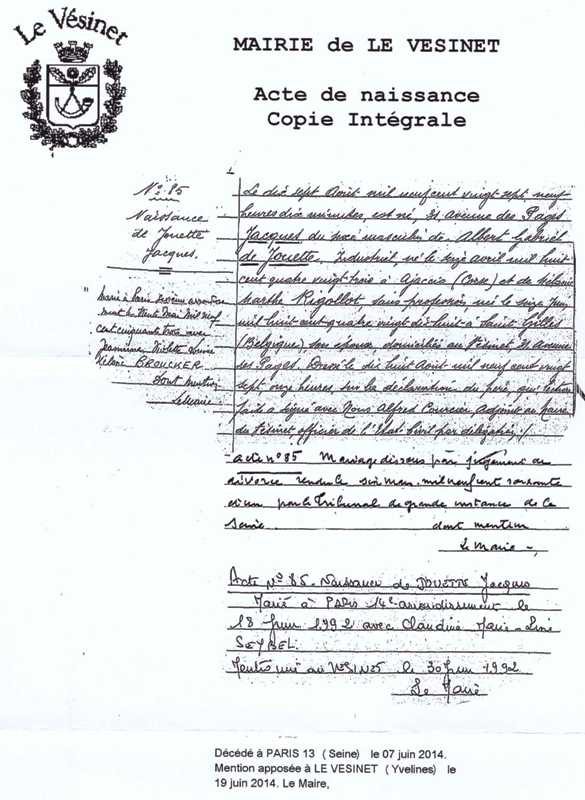 Le Vésinet
MAIRIE de LE VESINET
Acte de naissance
Copie Intégrale
N° 85
Naissance
de Jouette
Jacques
Marié à Paris
Jeannine Violette
Hélène BROUCKER
Dont mention
Le Maire
Le dix sept Août mil neuf cent vingt sept, neuf
heures dix minutes, est né, 31 avenue des Pages
Jacques du sexe masculin de Albert Gabriel
de Jouette, Industriel, né le seize avril mil huit
cent quatre vingt trois à Ajaccio (Corse) et de
Marthe Rigollot sans profession, née le seize
mil huit cent quatre vingt dix huit à Saint Gilles
(Belgique), son épouse, domiciliés au Vésinet 31 Avenue
des Pages. Dressé le dix huit Août mil neuf cent vingt
sept onze heures sur la déclaration du père, qui lecture
faite a signé avec Nous Alfred Courcier, Adjoint au Maire
du Vésinet, officier de l'Etat Civil par délégation ./.
acte n° 85 Mariage dissous par jugement de
divorce rendu le six mars mil neuf cent soixante
et un par le Tribunal de grande instance de la
Seine. dont mention
Le Maire -,
Acte N° 85. Naissance de JOUETTE Jacques
Marié à PARIS 14e arrondissement le
18 Juin 1992 avec Claudine Marie-Line
SEYBEL.
au VESINET le 30 Juin 1992
Le Maire
Décédé à PARIS 13 (Seine) le 07 juin 2014.
Mention apposée à LE VESINET (Yvelines) le
19 juin 2014. Le Maire,